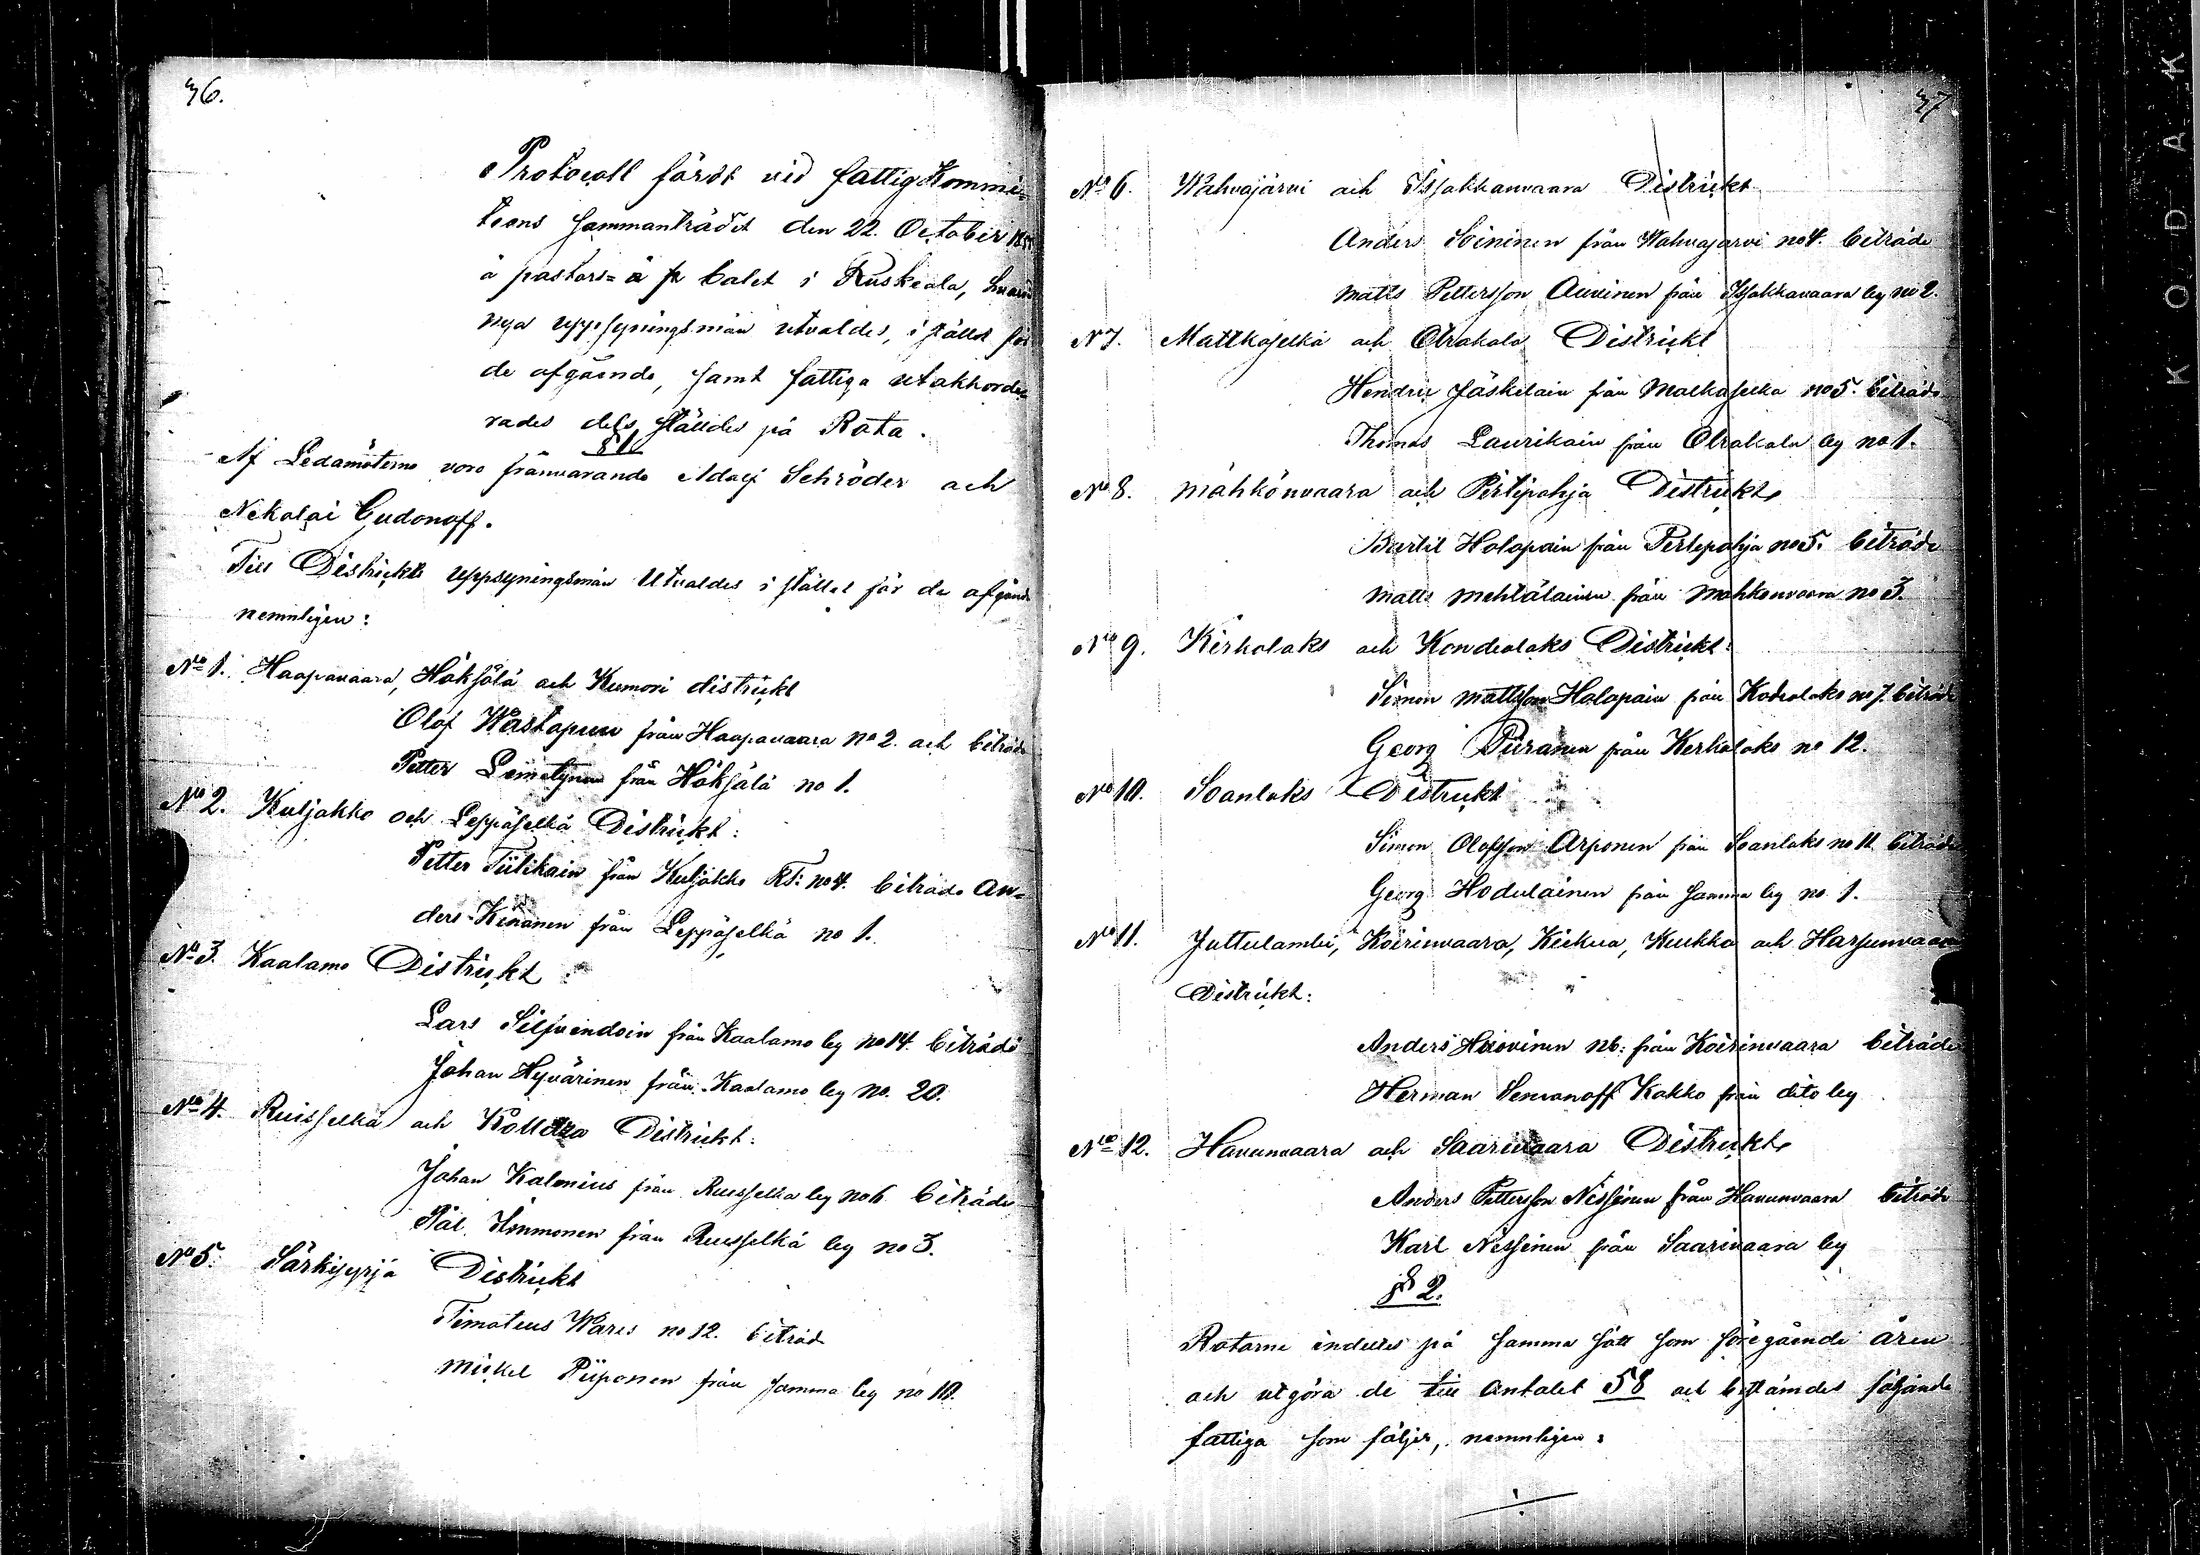 36.
Protocoll fördt vid fattig Kommi-
teens sammanträdet den 22. October
å pastors- å p balet i Ruskeala, hvari
nya uppsyningsmän utvaldes, i stället för
de afgående, samt fattiga utakkorde-
rades dels ställdes på Rota.
§ 1.
Af Ledamöterne voro frånvarande Adolf Schröder och
Nekolai Gudonoff.
Till Districkts uppsyningsmän Utvaldes i stället för de afgånde
nemnligen:
No 1. Haapavaara, Höksölä och Kumori districkt
Olof Wästapuu från Haapavaara no 2. och biträde
Petter Leimetynen från Höksälä no 1.
No 2. Kuljakko och Leppäselkä Districkt:
Petter Tiilikain från Kuljakko RT: no 4. biträde An-
ders Kinanen från Leppäselkä no 1.
No 3. Kaalamo Districkt
Lars Siljvendoin från Kaalamo lg no 14. biträde
Johan Hyvärinen från Kaalamo lg no. 20.
No 4. Ruisselkä och Districkt:
Johan Kalonius från Ruisselka lg no 6 biträde
Pål Immonen från Ruisselkä lg no 3.
No 5. Särkisyrjä Districkt
Timoteus Wares no 12. biträd
Mickel Piiponen från samma lg no 10.
37
No 6. Wahvajärvi och Issakkanvaara Districkt
Anders Soininen från Wahvajärvi no 4. biträde
Matts Pettersson Auvinen från Issakkavaara lg no 2.
No 7. Mattkaselkä och Otrakala Districkt
Hendric Jäskelain från Matkaselka no 5. biträde
Thomas Laurikain från Otrakala lg no 1.
No 8. Mähkönvaara och Pirtipohja Districkt
Bertil Holopain från Pertepohja no 5. biträde
Matts Mehtälainen från Mahkonvaara no 3.
No 9. Kirkolaks och Kondealaks Districkt:
Simon Mattsson Holapain från Kodealaks no 7. biträde
Georg Piiranen från Kerkolaks no 12.
No 10. Soanlaks Districkt
Simon Olofsson Arponen från Soanlaks no 11 biträde
Georg Hodulainen från samma lg no 1.
No 11. Juttulambi, Koirinvaara, Kiekua, Kuukka och Harsunvaara
Districkt:
Anders Hiovinen n6: från Koirinvaara biträde
Herman Semonoff Kokko från dito lg
No 12. Havunvaara och Saarivaara Districkt
Anders Pettersson Nissinen från Havunvaara biträde
Karl Nissinen från Saarivaara lg
§ 2.
Rotarne indeltes på samma sätt som föregående åren
och utgöra de till antalet 58 och bestämdes följande
fattiga som följer, nemnligen:
KODAK